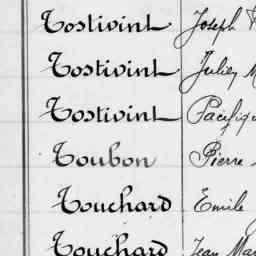 Tostivint Joseph
Tostivint Julien
Tostivint Pacifique
Toubon Pierre
Touchard Emile
Touchard Jean Mar